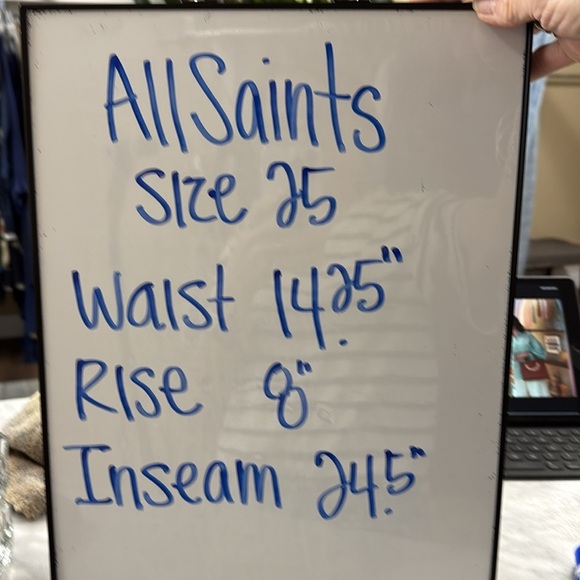 AllSaints
Size 25
Waist 14.25"
Rise 8"
Inseam 24.5"